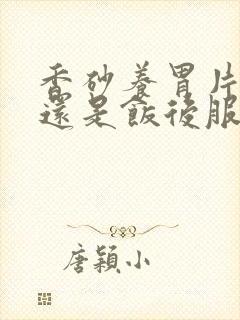 香砂養胃片
還是飯後服
唐穎小